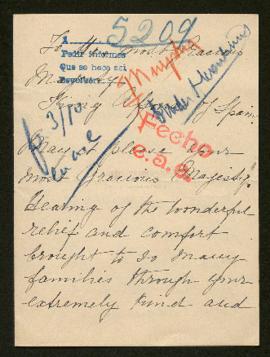 5209
Pedir informes
Que se hace así
Fecho
e.a.s.
To His Most Gracious
Majesty
King Alfonso of Spain.
May it please your
most Gracious Majesty!
Hearing of the wonderful
relief and comfort
brought to so many
families through your
extremely kind and